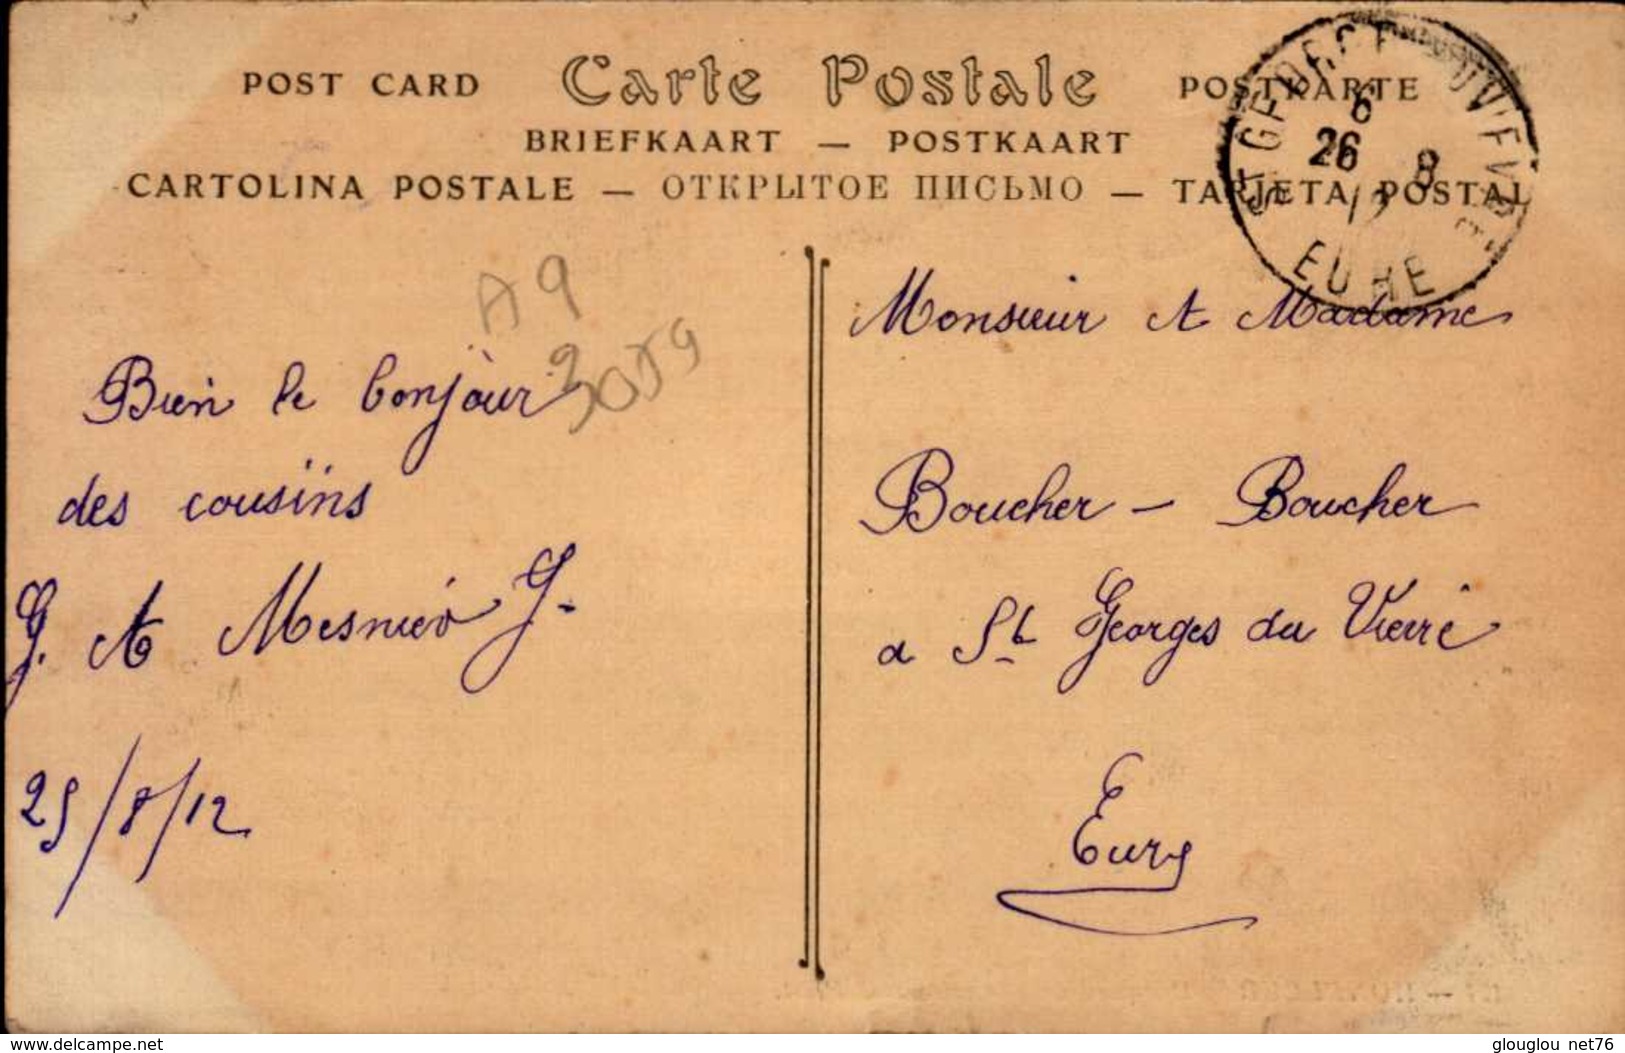 POST CARD Carte Postale POSTKARTE
BRIEFKAART — POSTKAART
CARTOLINA POSTALE — ОТКРЫТОЕ ПИСЬМО — TARJETA POSTAL
6
26 8
12
EURE
A9
3059
Bien le bonjour
des cousins
G. et Mesnier G.
25/8/12
Monsieur et Madame
Boucher - Boucher
a St Georges du Vievre
Eure
www.delcampe.net
glouglou net76